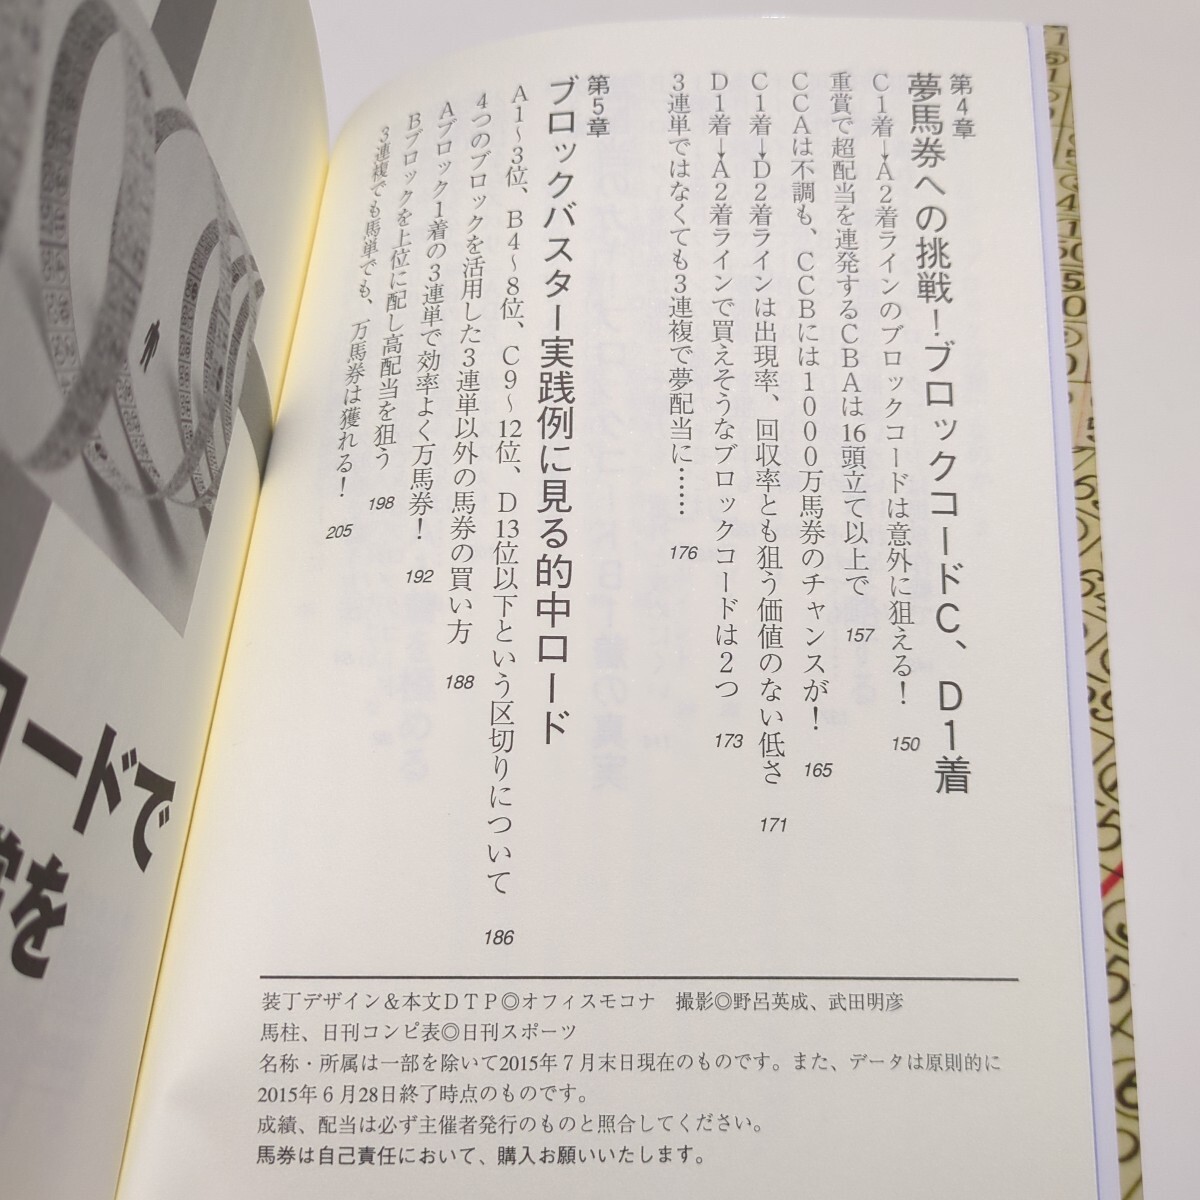 第4章
夢馬券への挑戦！ブロックコードC、D1着
C1着→A2着ラインのブロックコードは意外に狙える！ 150
重賞で超配当を連発するCBAは16頭立て以上で 157
CCAは不調も、CCBには1000万馬券のチャンスが！ 165
C1着→D2着ラインは出現率、回収率とも狙う価値のない低さ 171
D1着→A2着ラインで買えそうなブロックコードは2つ 173
3連単ではなくても3連複で夢配当に…… 176
第5章
ブロックバスター実践例に見る的中ロード
A1〜3位、B4〜8位、C9〜12位、D13位以下という区切りについて 186
4つのブロックを活用した3連単以外の馬券の買い方 188
Aブロック1着の3連単で効率よく万馬券！ 192
Bブロックを上位に配し高配当を狙う 198
3連複でも馬単でも、万馬券は獲れる！ 205
装丁デザイン＆本文DTP◎オフィスモコナ　撮影◎野呂英成、武田明彦
馬柱、日刊コンピ表◎日刊スポーツ
名称・所属は一部を除いて2015年7月末日現在のものです。また、データは原則的に
2015年6月28日終了時点のものです。
成績、配当は必ず主催者発行のものと照合してください。
馬券は自己責任において、購入お願いいたします。
コードで
を